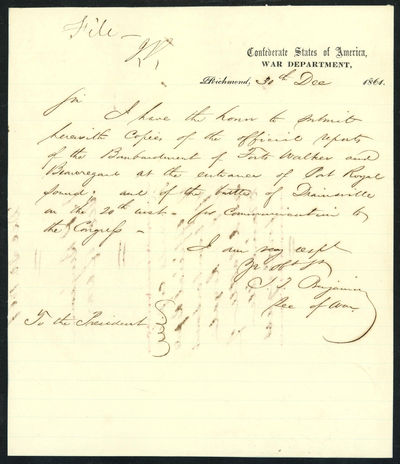 File -
Confederate States of America,
WAR DEPARTMENT,
Richmond, 30th Dec 1861.
Sir
I have the honor to submit
herewith Copies of the official reports
of the Bombardment of Forts Walker and
Beauregard at the entrance of Port Royal
Sound; and of the battle of Drainsville
on the 20th inst - for communication to
the Congress -
I am very respy
Yr Obt St
J. P. Benjamin
Sec of War
To the President